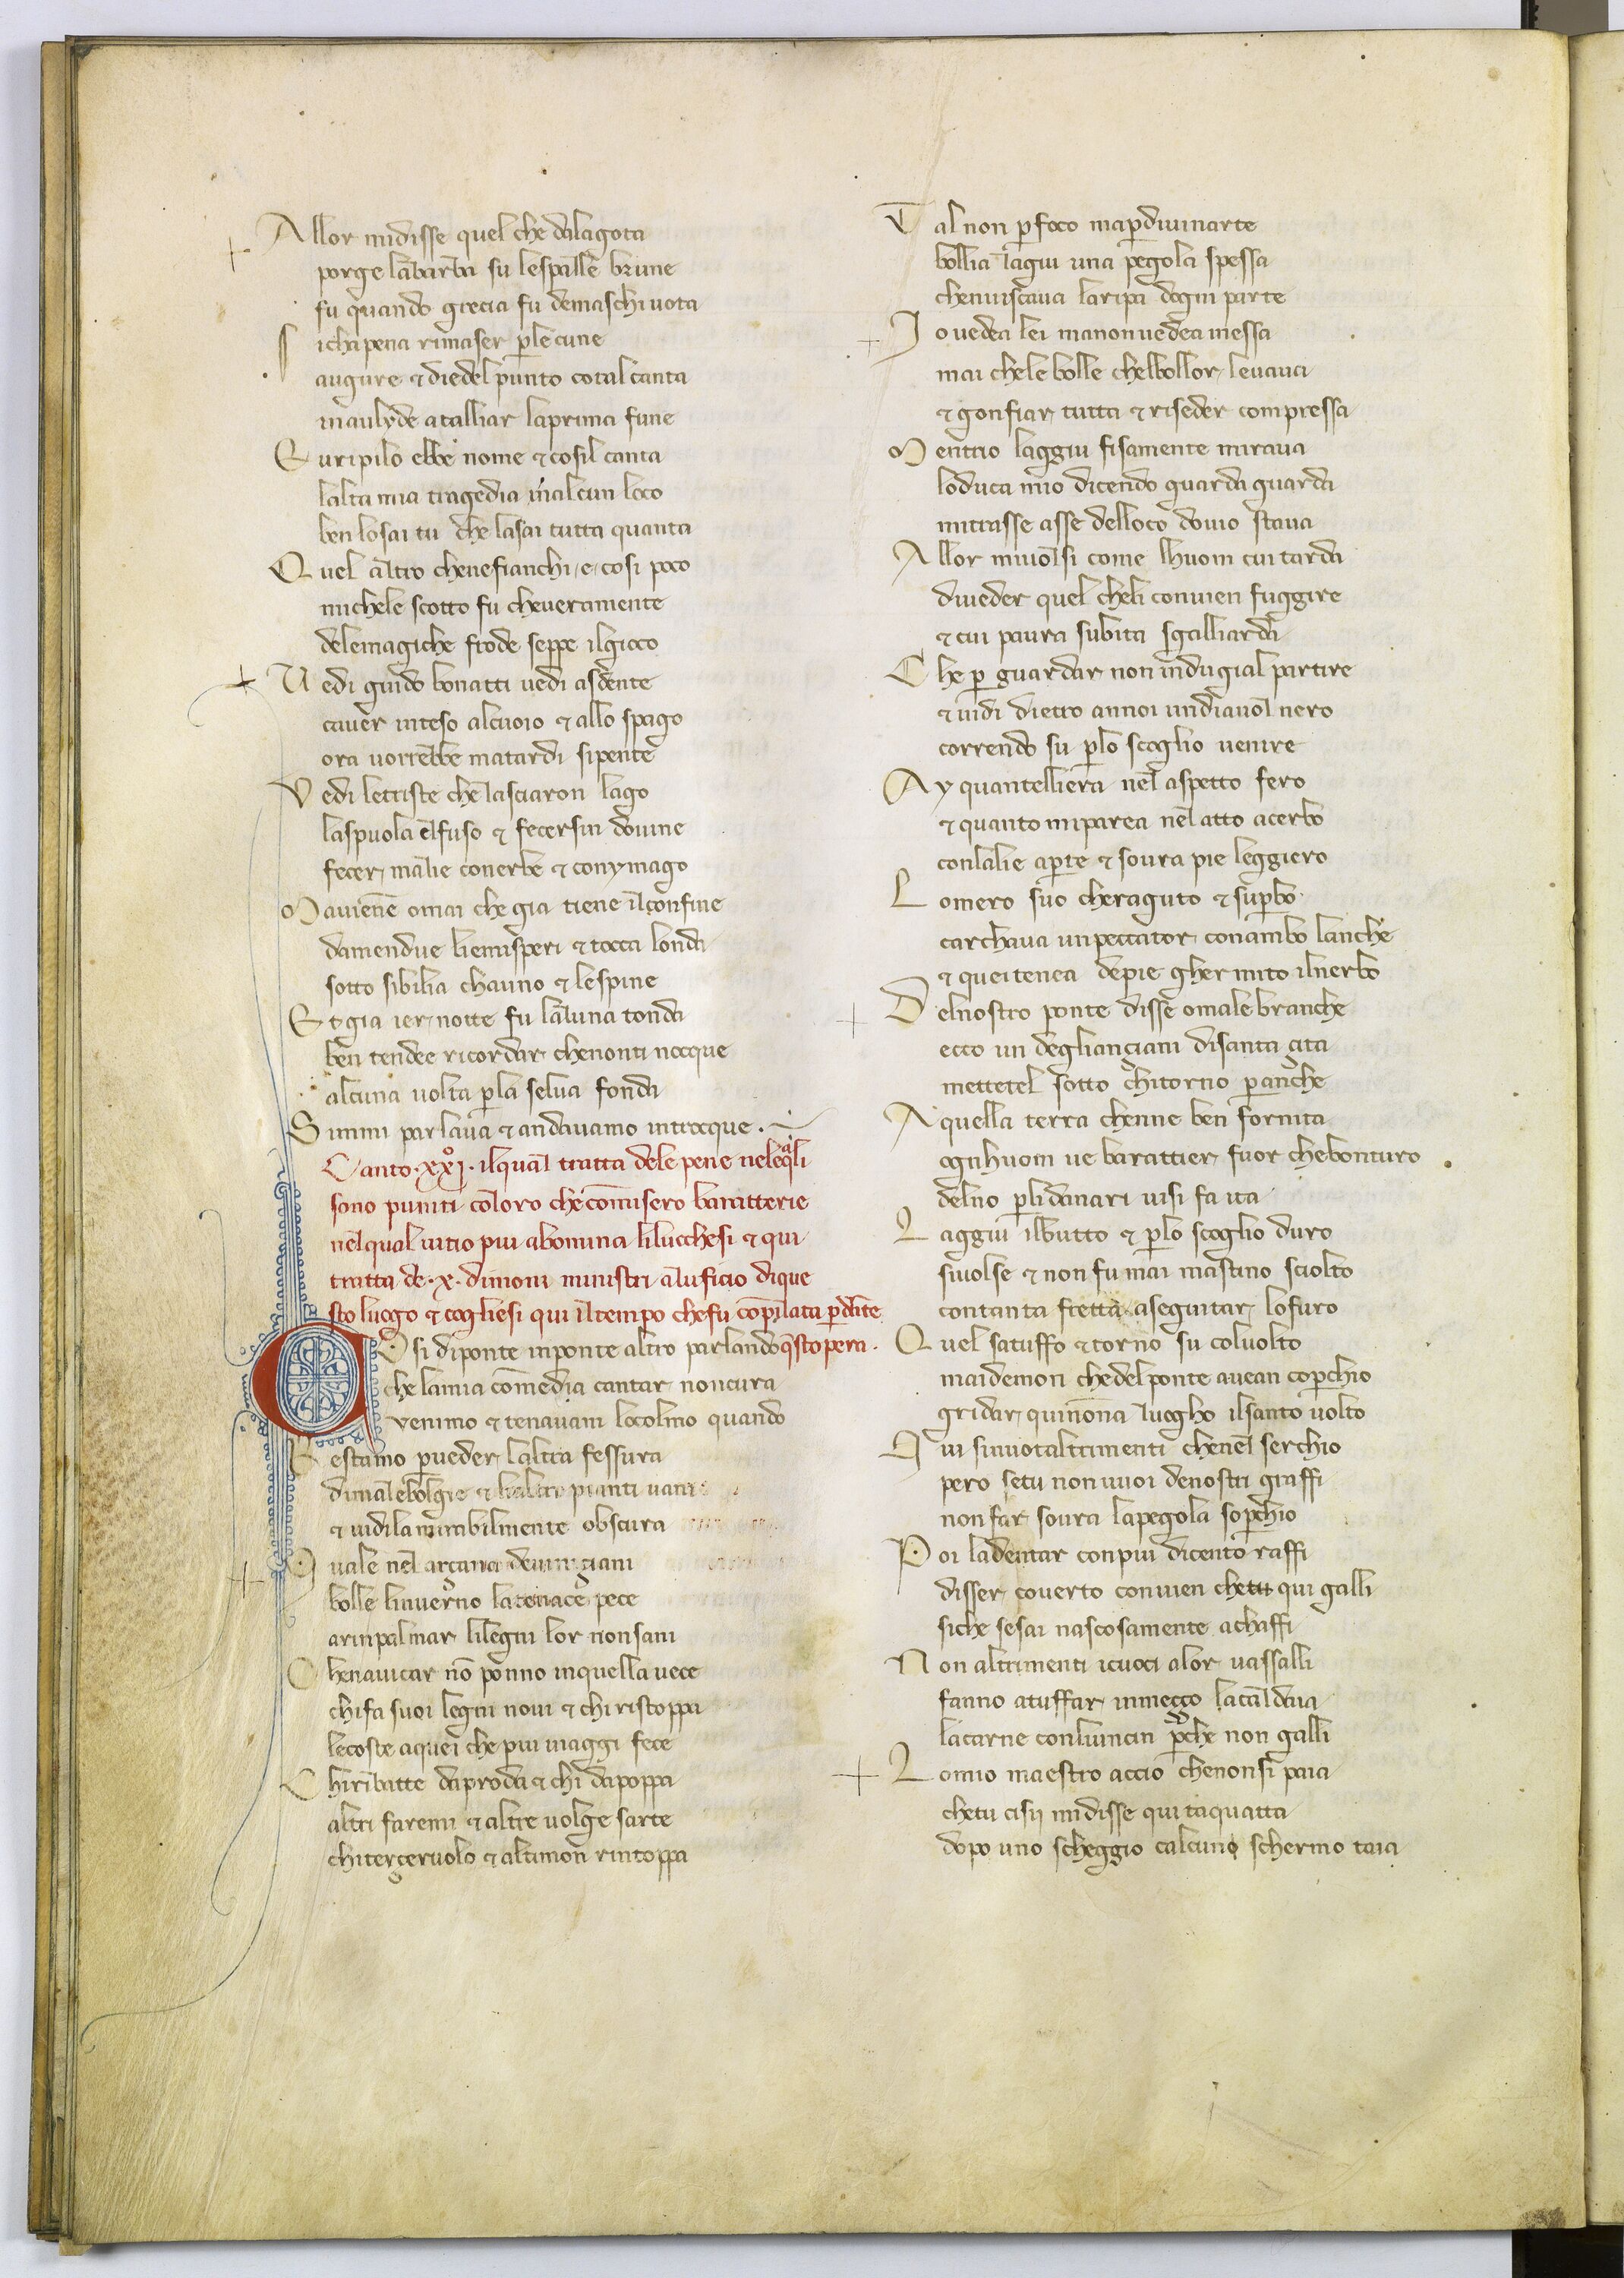 Allor midisse quel che dalagota
porge labarba su lespalle brune
fu quando grecia fu demaschi uota
sichapena rimaser ple cune
augure & diedel punto cotal canta
inaulyde atalliar laprima fune
Euripilo ebbe nome & cosil canta
lalta mia tragedia inalcun loco
ben losai tu che lasai tutta quanta
Quel altro chenefianchi e cosi poco
michele scotto fu cheueramente
delemagiche frode seppe ilgioco
Uedi guido bonatti uedi asdente
cauer inteso alcuoio & allo spago
ora uorrebbe matardi sipente
Vedi letriste che lasciaron lago
laspuola elfuso & fecersin diuine
fecer malie conerbe & conymago
Mauienne omai che gia tiene ilconfine
damendue hemisperi & tocca londa
sotto sibilia chaino & lespine
Et gia ier notte fu la luna tonda
ben tendee ricordar chenonti nocque
alcuna uolta pla selua fonda
Simmi parlaua & andauamo introcque
Canto .xxj. ilqual tratta dele pene neleqli
sono puniti coloro che comisero baratterie
nelqual uitio piu abomina lilucchesi & qui
tratta de .x. dimoni ministri aluficio dique
sto luogo & cogliesi qui iltempo chefu compilata pdante
Cosi diponte inponte altro parlando qstopera.
che lamia comedia cantar noncura
venimo & tenauam locolmo quando
Restamo pueder laltra fessura
dimalebolgie & lialtri pianti uani
& uidila mirabilmente obscura
Quale nel arçana deuiniçiani
bolle linuerno latenace pece
arinpalmar lilegni lor nonsani
Chenauicar nō ponno inquella uece
chifa suoi legni noui & chi ristoppa
lecoste aquei che piu uiaggi fece
Chiribatte daproda & chi dapoppa
altri faremi & altre uolge sarte
chiterçeruolo & altimon rintoppa
Tal non pfoco mapdiuinarte
bollia lagiu una pegola spessa
cheinuiscaua laripa dogni parte
Io uedea lei manonuedea inessa
mai chele bolle chelbollor leuaua
& gonfiar tutta & riseder compressa
Mentrio laggiu fisamente miraua
loduca mio dicendo guarda guarda
mitrasse asse delloco douio staua
Allor miuolsi come lhuom cui tarda
diueder quel cheli conuien fuggire
& cui paura subita sgalliarda
Che p guardar non indugial partire
& uidi dietro annoi undiauol nero
correndo su plo scoglio uenire
Ay quantelliera nel aspetto fero
& quanto miparea nel atto acerbo
conlalie apte & soura pie leggiero
Lomero suo cheraguto & supbo
carchaua unpeccator conambo lanche
& queitenea depie ghermito ilnerbo
Delnostro ponte disse omalebranche
ecco un deglianciani disanta çita
mettetel sotto chitorno panche
Aquella terra chenne ben fornita
ognhuom ue barattier fuor chebonturo
delno plidanari uisi fa ita
Laggiu ilbutto & plo scoglio duro
siuolse & non fu mai mastino sciolto
contanta fretta aseguitar lofuro
Quel satuffo & torno su coluolto
maidemon chedel ponte auean copchio
gridar quinonna luogho ilsanto uolto
Qui sinuotaltrimenti chenel serchio
pero setu non uuoi denostri graffi
non far soura lapegola sopchio
Poi ladentar conpiu dicento raffi
disser couerto conuien chetu qui galli
siche sesai nascosamente achaffi
Non altrimenti icuoci alor uassalli
fanno atuffar inmecço lacaldaia
lacarne conliuncin pche non galli
Lomio maestro accio chenonsi paia
chetu cisij midisse qui taquatta
dopo uno scheggio calcuno schermo taia